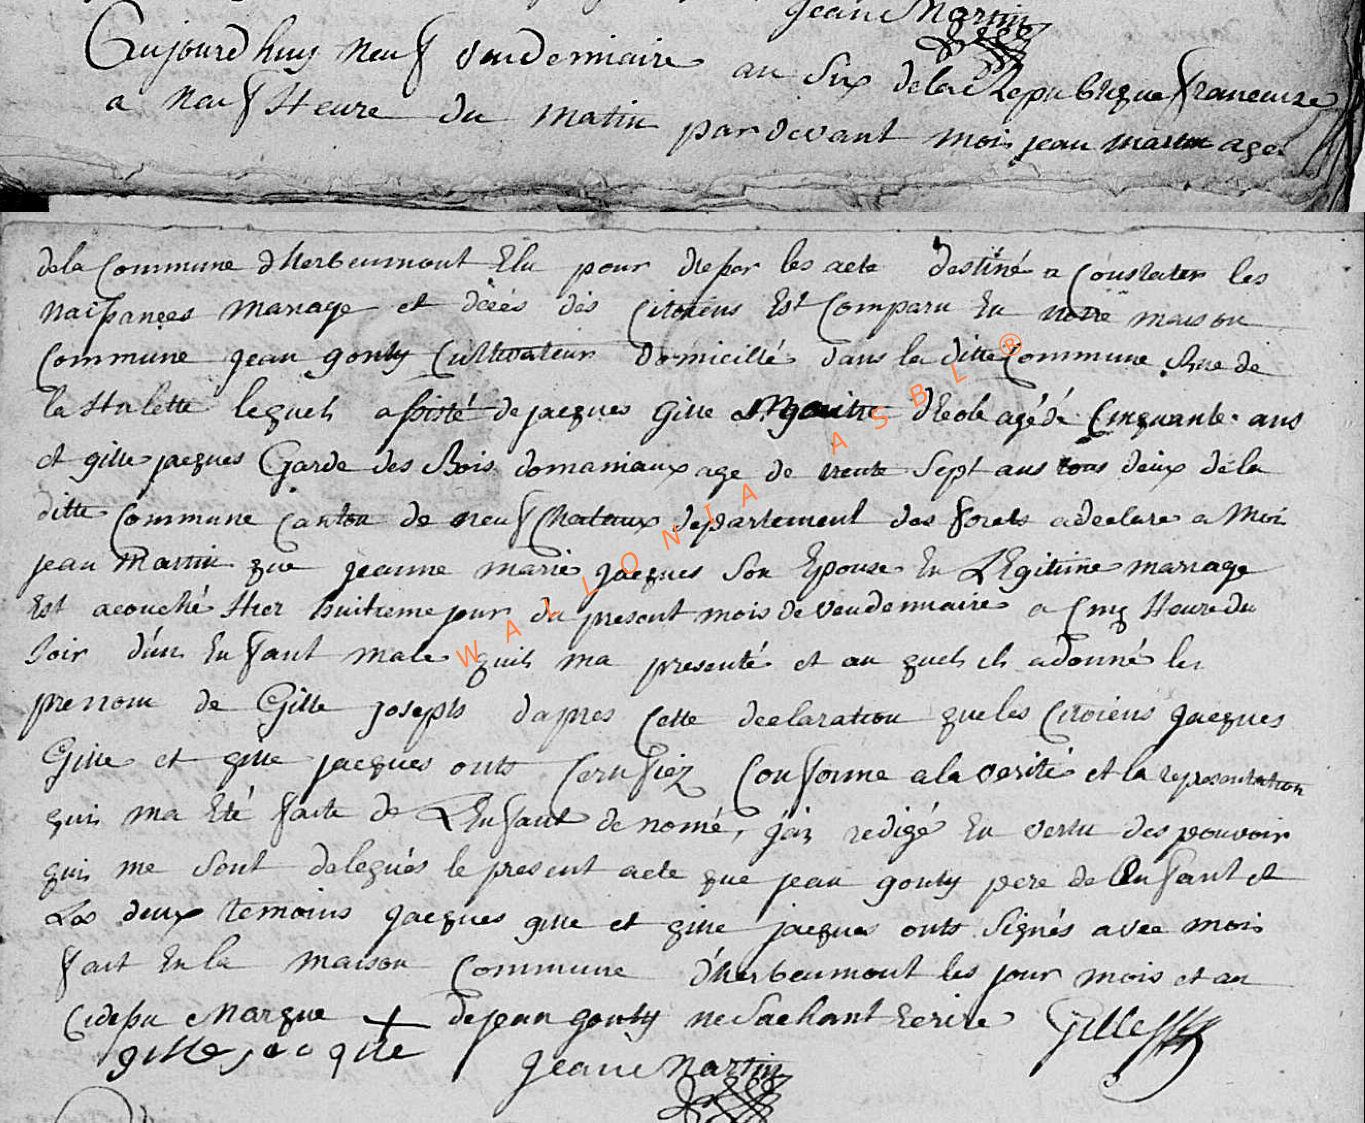 Jean Martin
Aujourdhuy neuf vendemiaire an Six dela Republique francaise
a neuf Heure du matin pardevant moi jean martin agé
dela Commune dHerbeumont Elu pour les acte destiné a Constater les
naissances mariage et décés des Citoiens Est Comparu En notre maison
Commune jean gouty Cultivateur domicillé dans la ditte Commune Rue de
la lequel assisté de jacques Gille Maitre dEcole agé de Cinquante ans
et gille jacques Garde des Bois domaniaux age de trente Sept ans tous deux dela
ditte Commune Canton de neufChateaux departement des forets adeclare a Moi
jean Martin que jeanne marie jacques Son Epouse En LEgitime mariage
Est acouché Hier huitieme jour du present mois de vendemiaire a Cinq Heure du
Soir dun Enfant male quil ma presenté et au quel il adonné les
prenom de Gille joseph dapres Cette declaration que les Citoiens jacques
Gille et gille jacques onts Certifiez Conforme ala verité et la representation
qui ma Eté faite de LEnfant denomé, jai redigé En vertu des pouvoir
qui me Sont delegués le present acte que jean gouty pere de lEnfant et
Les deux temoins jacques gille et gille jacques onts Signés avec moi
fait En la maison Commune dherbeumont les jour mois et an
Cidessu Marque + dejean gouty ne Sachant Ecrire Gilles
gille jacque jean Martin
WALLONIA ASBL ®